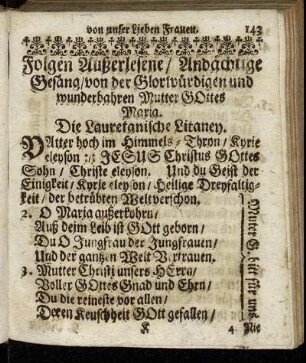 von unser Lieben Frauen. 143
Folgen Außerlesene / Andächtige
Gesäng / von der Glorwürdigen und
wunderbahren Mutter GOttes
Maria.
Die Lauretanische Litaney.
VAtter hoch im Himmels-Thron / Kyrie
eleyson :/: JESUS Christus GOttes
Sohn / Christe eleyson. Und du Geist der
Einigkeit / Kyrie eleyson / Heilige Dreyfaltig-
keit / der betrübten Welt verschon.
2. O Maria außerkohrn /
Auß deim Leib ist GOtt geborn /
Du O Jungfrau der Jungfrauen /
Und der gantzen Welt Vertrauen.
3. Mutter Christi unsers HErrn /
Voller GOttes Gnad und Ehrn /
Du die reineste vor allen /
Deren Keuschheit GOtt gefallen /
Mutter G. bitt für uns.
K 4 Die